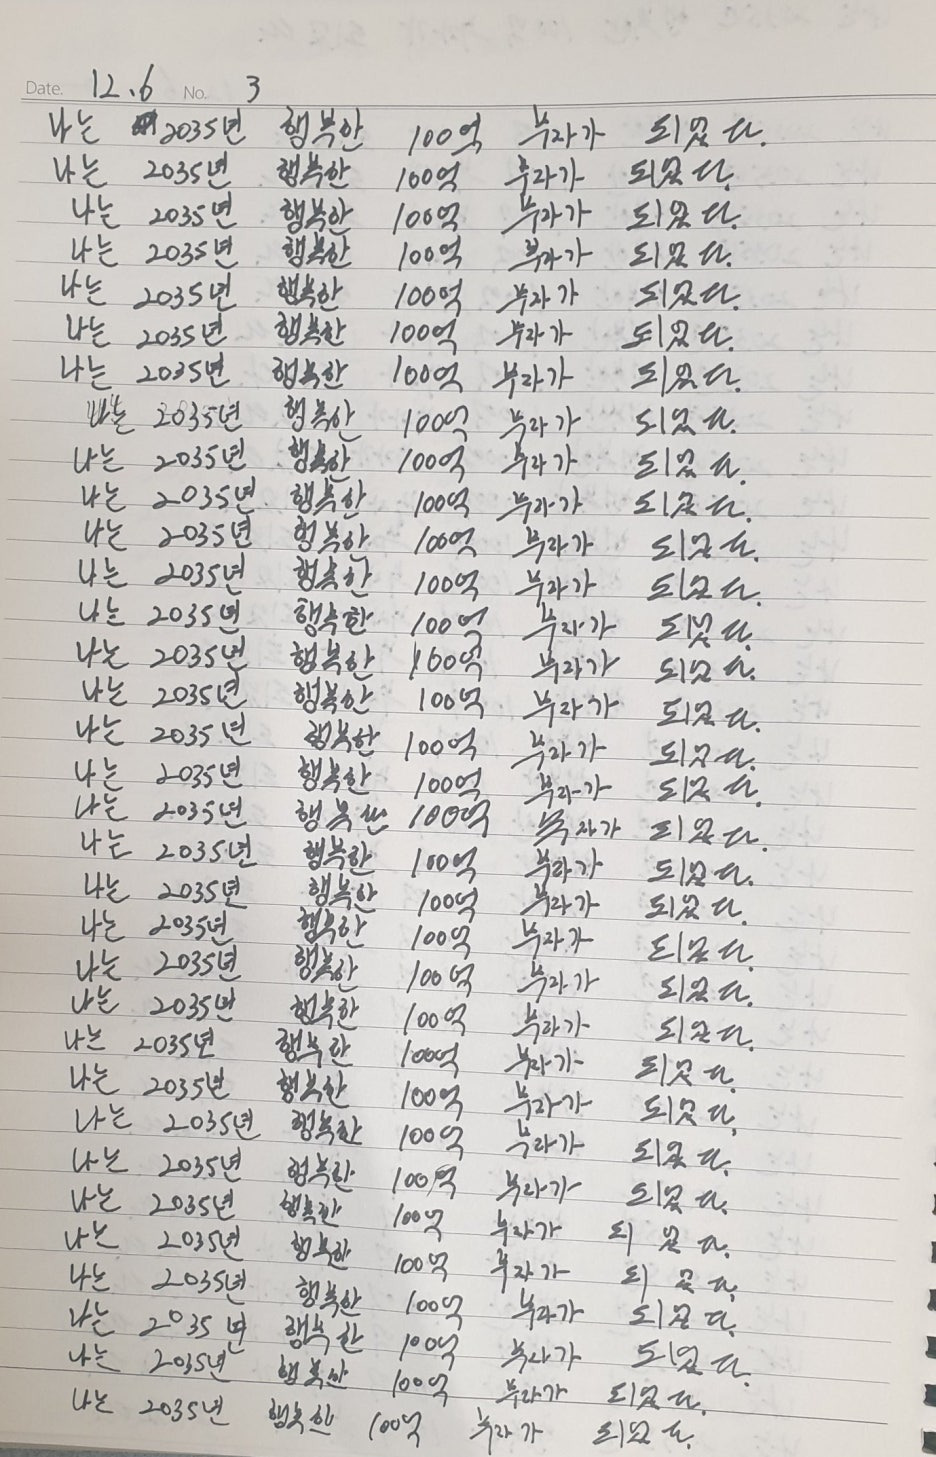 Date. 12.6 No. 3
나는 2035년 행복한 100억 부자가 되었다.
나는 2035년 행복한 100억 부자가 되었다.
나는 2035년 행복한 100억 부자가 되었다.
나는 2035년 행복한 100억 부자가 되었다.
나는 2035년 행복한 100억 부자가 되었다.
나는 2035년 행복한 100억 부자가 되었다.
나는 2035년 행복한 100억 부자가 되었다.
나는 2035년 행복한 100억 부자가 되었다.
나는 2035년 행복한 100억 부자가 되었다.
나는 2035년 행복한 100억 부자가 되었다.
나는 2035년 행복한 100억 부자가 되었다.
나는 2035년 행복한 100억 부자가 되었다.
나는 2035년 행복한 100억 부자가 되었다.
나는 2035년 행복한 100억 부자가 되었다.
나는 2035년 행복한 100억 부자가 되었다.
나는 2035년 행복한 100억 부자가 되었다.
나는 2035년 행복한 100억 부자가 되었다.
나는 2035년 행복한 100억 부자가 되었다.
나는 2035년 행복한 100억 부자가 되었다.
나는 2035년 행복한 100억 부자가 되었다.
나는 2035년 행복한 100억 부자가 되었다.
나는 2035년 행복한 100억 부자가 되었다.
나는 2035년 행복한 100억 부자가 되었다.
나는 2035년 행복한 100억 부자가 되었다.
나는 2035년 행복한 100억 부자가 되었다.
나는 2035년 행복한 100억 부자가 되었다.
나는 2035년 행복한 100억 부자가 되었다.
나는 2035년 행복한 100억 부자가 되었다.
나는 2035년 행복한 100억 부자가 되었다.
나는 2035년 행복한 100억 부자가 되었다.
나는 2035년 행복한 100억 부자가 되었다.
나는 2035년 행복한 100억 부자가 되었다.
나는 2035년 행복한 100억 부자가 되었다.